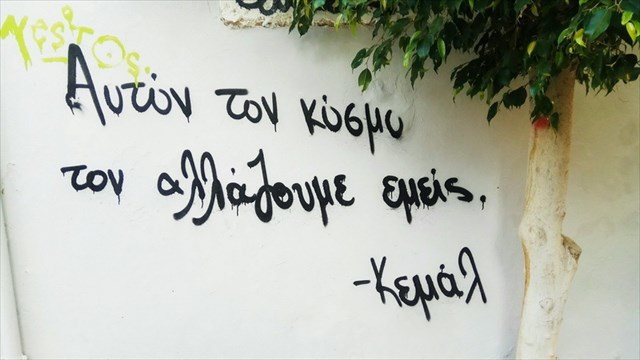 Αυτόν τον κόσμο
τον αλλάζουμε εμείς.
-Κεμάλ